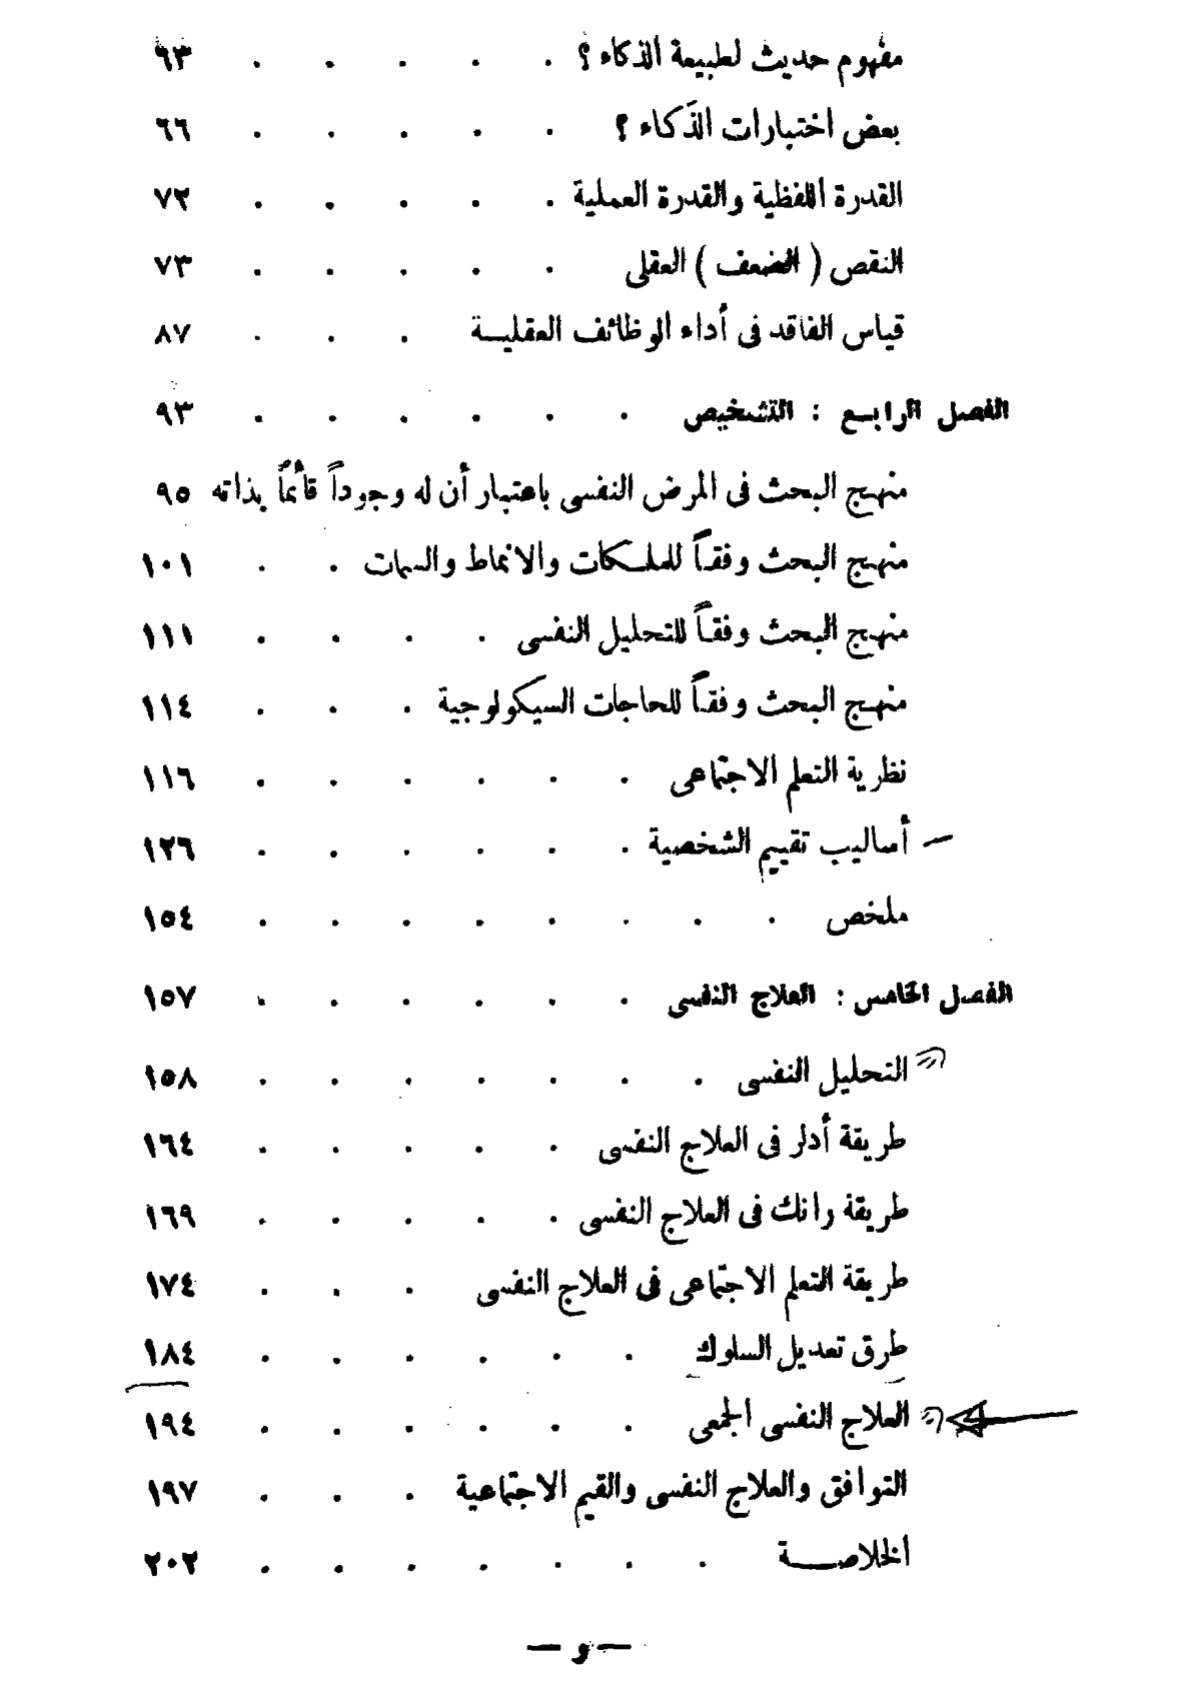 مفهوم حديث لطبيعة الذكاء ؟ . . . . . ٦٣
بعض اختبارات الذكاء ؟ . . . . . ٦٦
القدرة اللفظية والقدرة العملية . . . . . ٧٢
النقص ( الضعف ) العقلى . . . . . ٧٣
قياس الفاقد فى أداء الوظائف العقليـة . . . ٨٧
الفصل الرابـع : التشخيص . . . . . . ٩٣
منهج البحث فى المرض النفسى باعتبار أن له وجوداً قائماً بذاته ٩٥
منهج البحث وفقاً للملكات والانماط والسمات . . ١٠١
منهج البحث وفقاً للتحليل النفسى . . . . ١١١
منهج البحث وفقاً للحاجات السيكولوجية . . . ١١٤
نظرية التعلم الاجتماعى . . . . . . ١١٦
— أساليب تقييم الشخصية . . . . . . ١٢٦
ملخص . . . . . . . . ١٥٤
الفصل الخامس : العلاج النفسى . . . . . . ١٥٧
التحليل النفسى . . . . . . . ١٥٨
طريقة أدلر فى العلاج النفسى . . . . . ١٦٤
طريقة رانك فى العلاج النفسى . . . . . ١٦٩
طريقة التعلم الاجتماعى فى العلاج النفسى . . . ١٧٤
طرق تعديل السلوك . . . . . . ١٨٤
العلاج النفسى الجمعى . . . . . . ١٩٤
التوافق والعلاج النفسى والقيم الاجتماعية . . . ١٩٧
الخلاصـــة . . . . . . . ٢٠٢
— و —